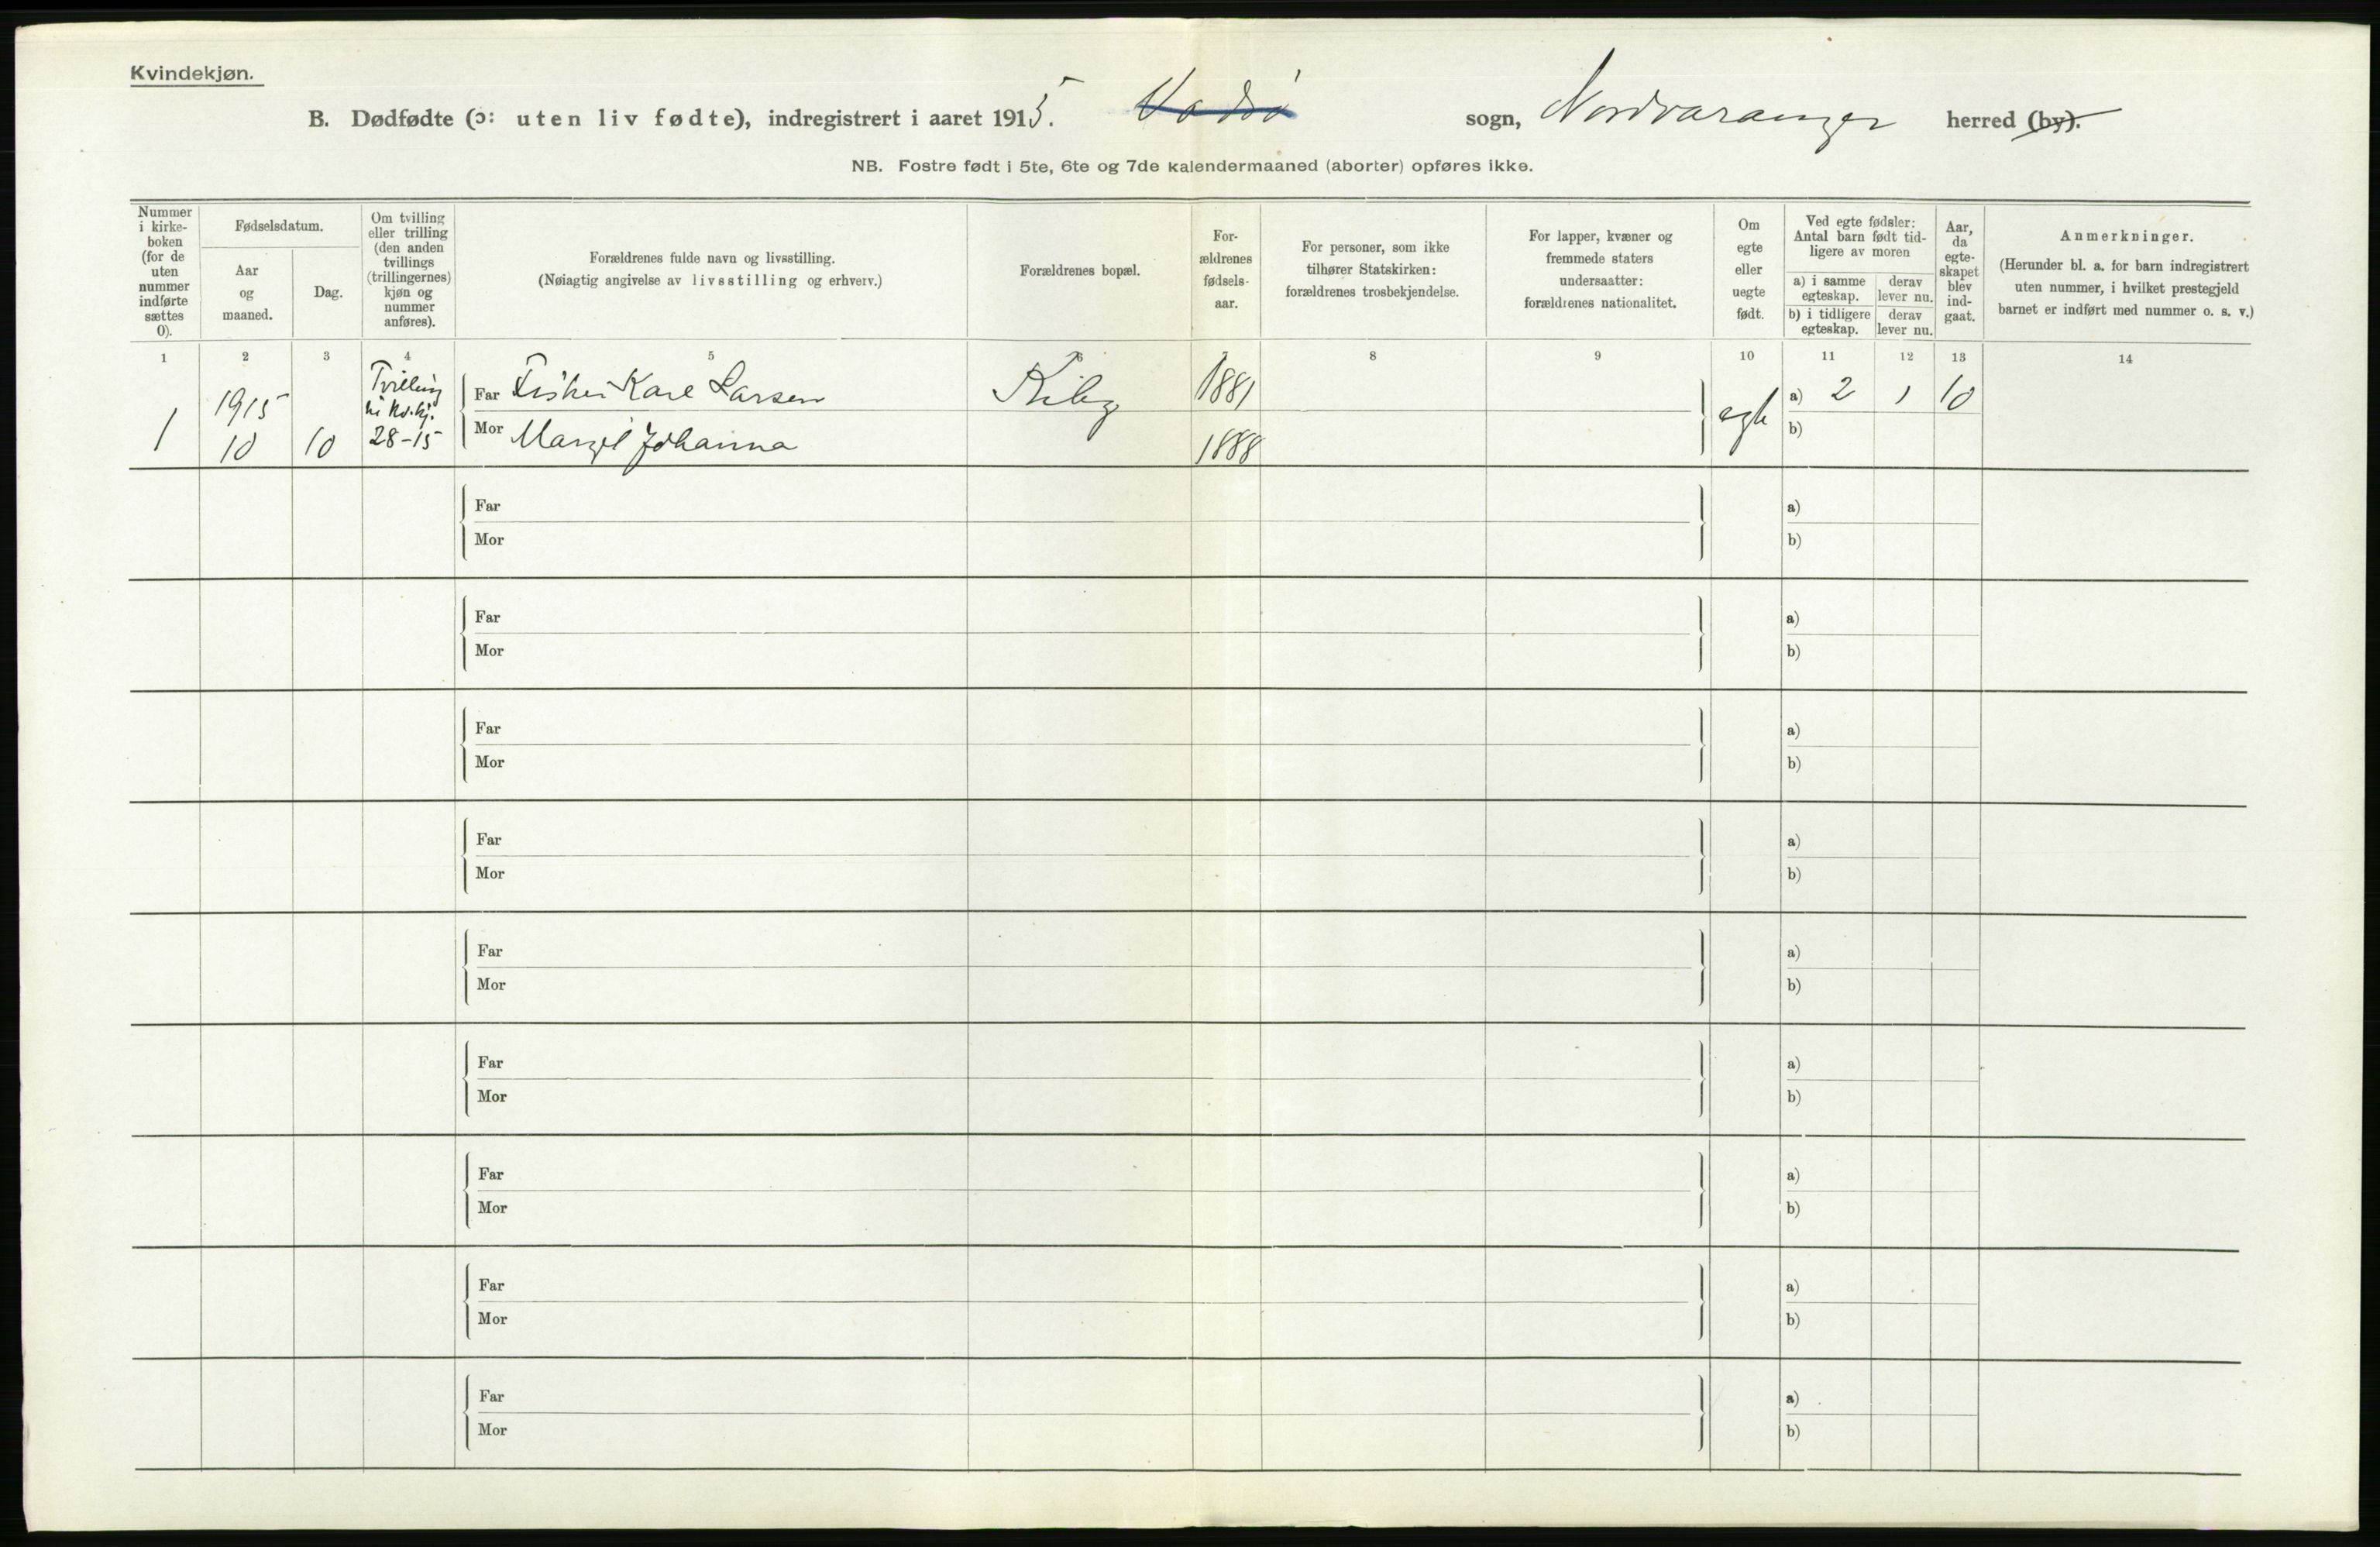 Kvindekjøn.
B. Dødfødte (ɔ: uten liv fødte), indregistrert i aaret 1915. Vadsø sogn, Nordvaranger herred (by).
NB. Fostre født i 5te, 6te og 7de kalendermaaned (aborter) opføres ikke.
Nummer i kirke-boken (for de uten nummer indførte sættes 0).
Fødselsdatum.
Aar og maaned.
Dag.
Om tvilling eller trilling (den anden tvillings (trillingernes) kjøn og nummer anføres).
Forældrenes fulde navn og livsstilling.
(Nøiagtig angivelse av livsstilling og erhverv.)
Forældrenes bopæl.
For-ældrenes fødsels-aar.
For personer, som ikke tilhører Statskirken: forældrenes trosbekjendelse.
For lapper, kvæner og fremmede staters undersaatter: forældrenes nationalitet.
Om egte eller uegte født.
Ved egte fødsler: Antal barn født tid-ligere av moren
a) i samme egteskap. derav lever nu.
b) i tidligere egteskap. derav lever nu.
Aar, da egte-skapet blev ind-gaat.
Anmerkninger.
(Herunder bl. a. for barn indregistrert uten nummer, i hvilket prestegjeld barnet er indført med nummer o. s. v.)
1 2 3 4 5 6 7 8 9 10 11 12 13 14
1
1915
10 10
Tvilling
kv.kj.
28-15
Far Fisker Karl Larsen Kiby 1881
Mor Margit Johanna 1888
a) 2 1 10
b)
Far a)
Mor b)
Far a)
Mor b)
Far a)
Mor b)
Far a)
Mor b)
Far a)
Mor b)
Far a)
Mor b)
Far a)
Mor b)
Far a)
Mor b)
Far a)
Mor b)